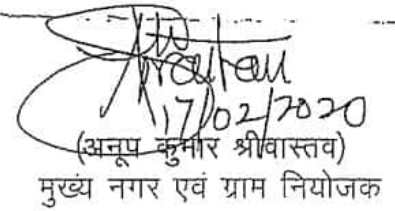 17/02/2020
(अनूप कुमार श्रीवास्तव)
मुख्य नगर एवं ग्राम नियोजक